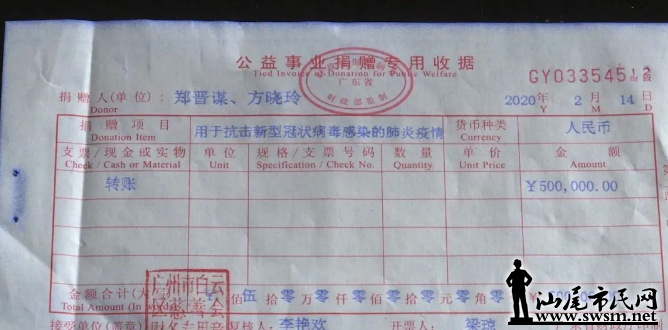 公益事业捐赠专用收据
Tied Invoice of Donation for Public Welfare
广东省
财政部监制
GY03354512
捐赠人(单位): 郑晋谋、方晓玲 2020年 2月 14日
Donor Y M D
捐赠项目 用于抗击新型冠状病毒感染的肺炎疫情 货币种类 人民币
Donation Item Currency
支票/现金或实物 单位 规格/支票号码 数量 单价 金额
Check / Cash or Material Unit Specification / Check No. Quantity Unit Price Amount
转账 ¥500,000.00
金额合计(大写) 佰 伍 拾 零 万 零 仟 零 佰 零 拾 零 元 零 角 零
Total Amount (In
广州市白云
慈善会
接受单位(盖章) 复核人: 李艳欢 开票人: 梁琼
汕尾市民网
www.swsm.net